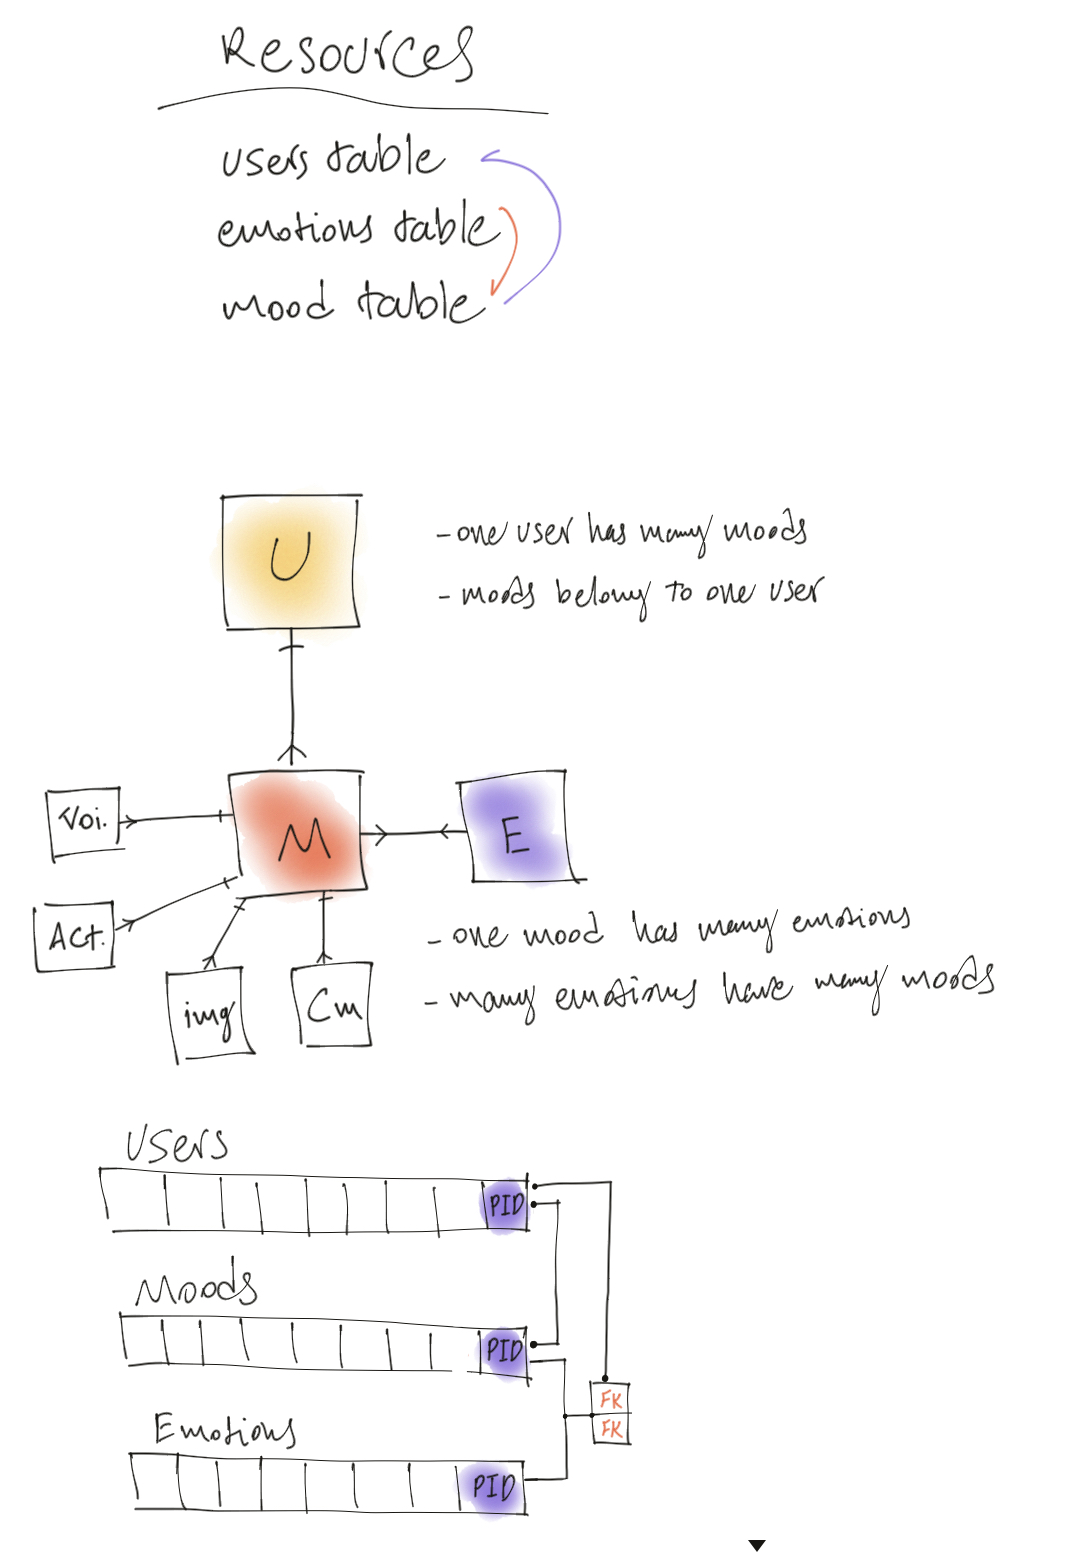 Resources
users table
emotions table
mood table
U
- one user has many moods
- moods belong to one user
Voi.
M
E
Act.
img
Cm
- one mood has many emotions
- many emotions have many moods
Users
PID
Moods
PID
FK
FK
Emotions
PID